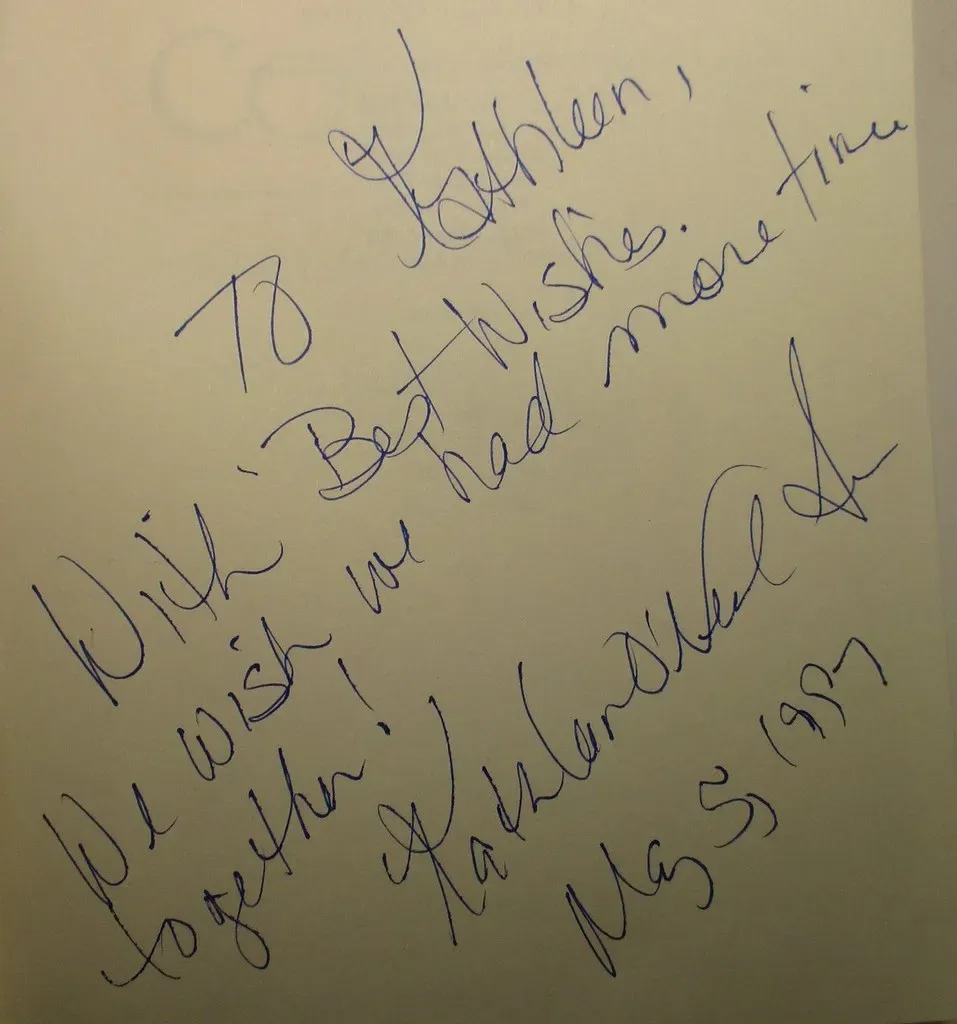 To Kathleen,
With Best Wishes.
We wish we had more time
together!
Kathleen O'Neal
May 5, 1997